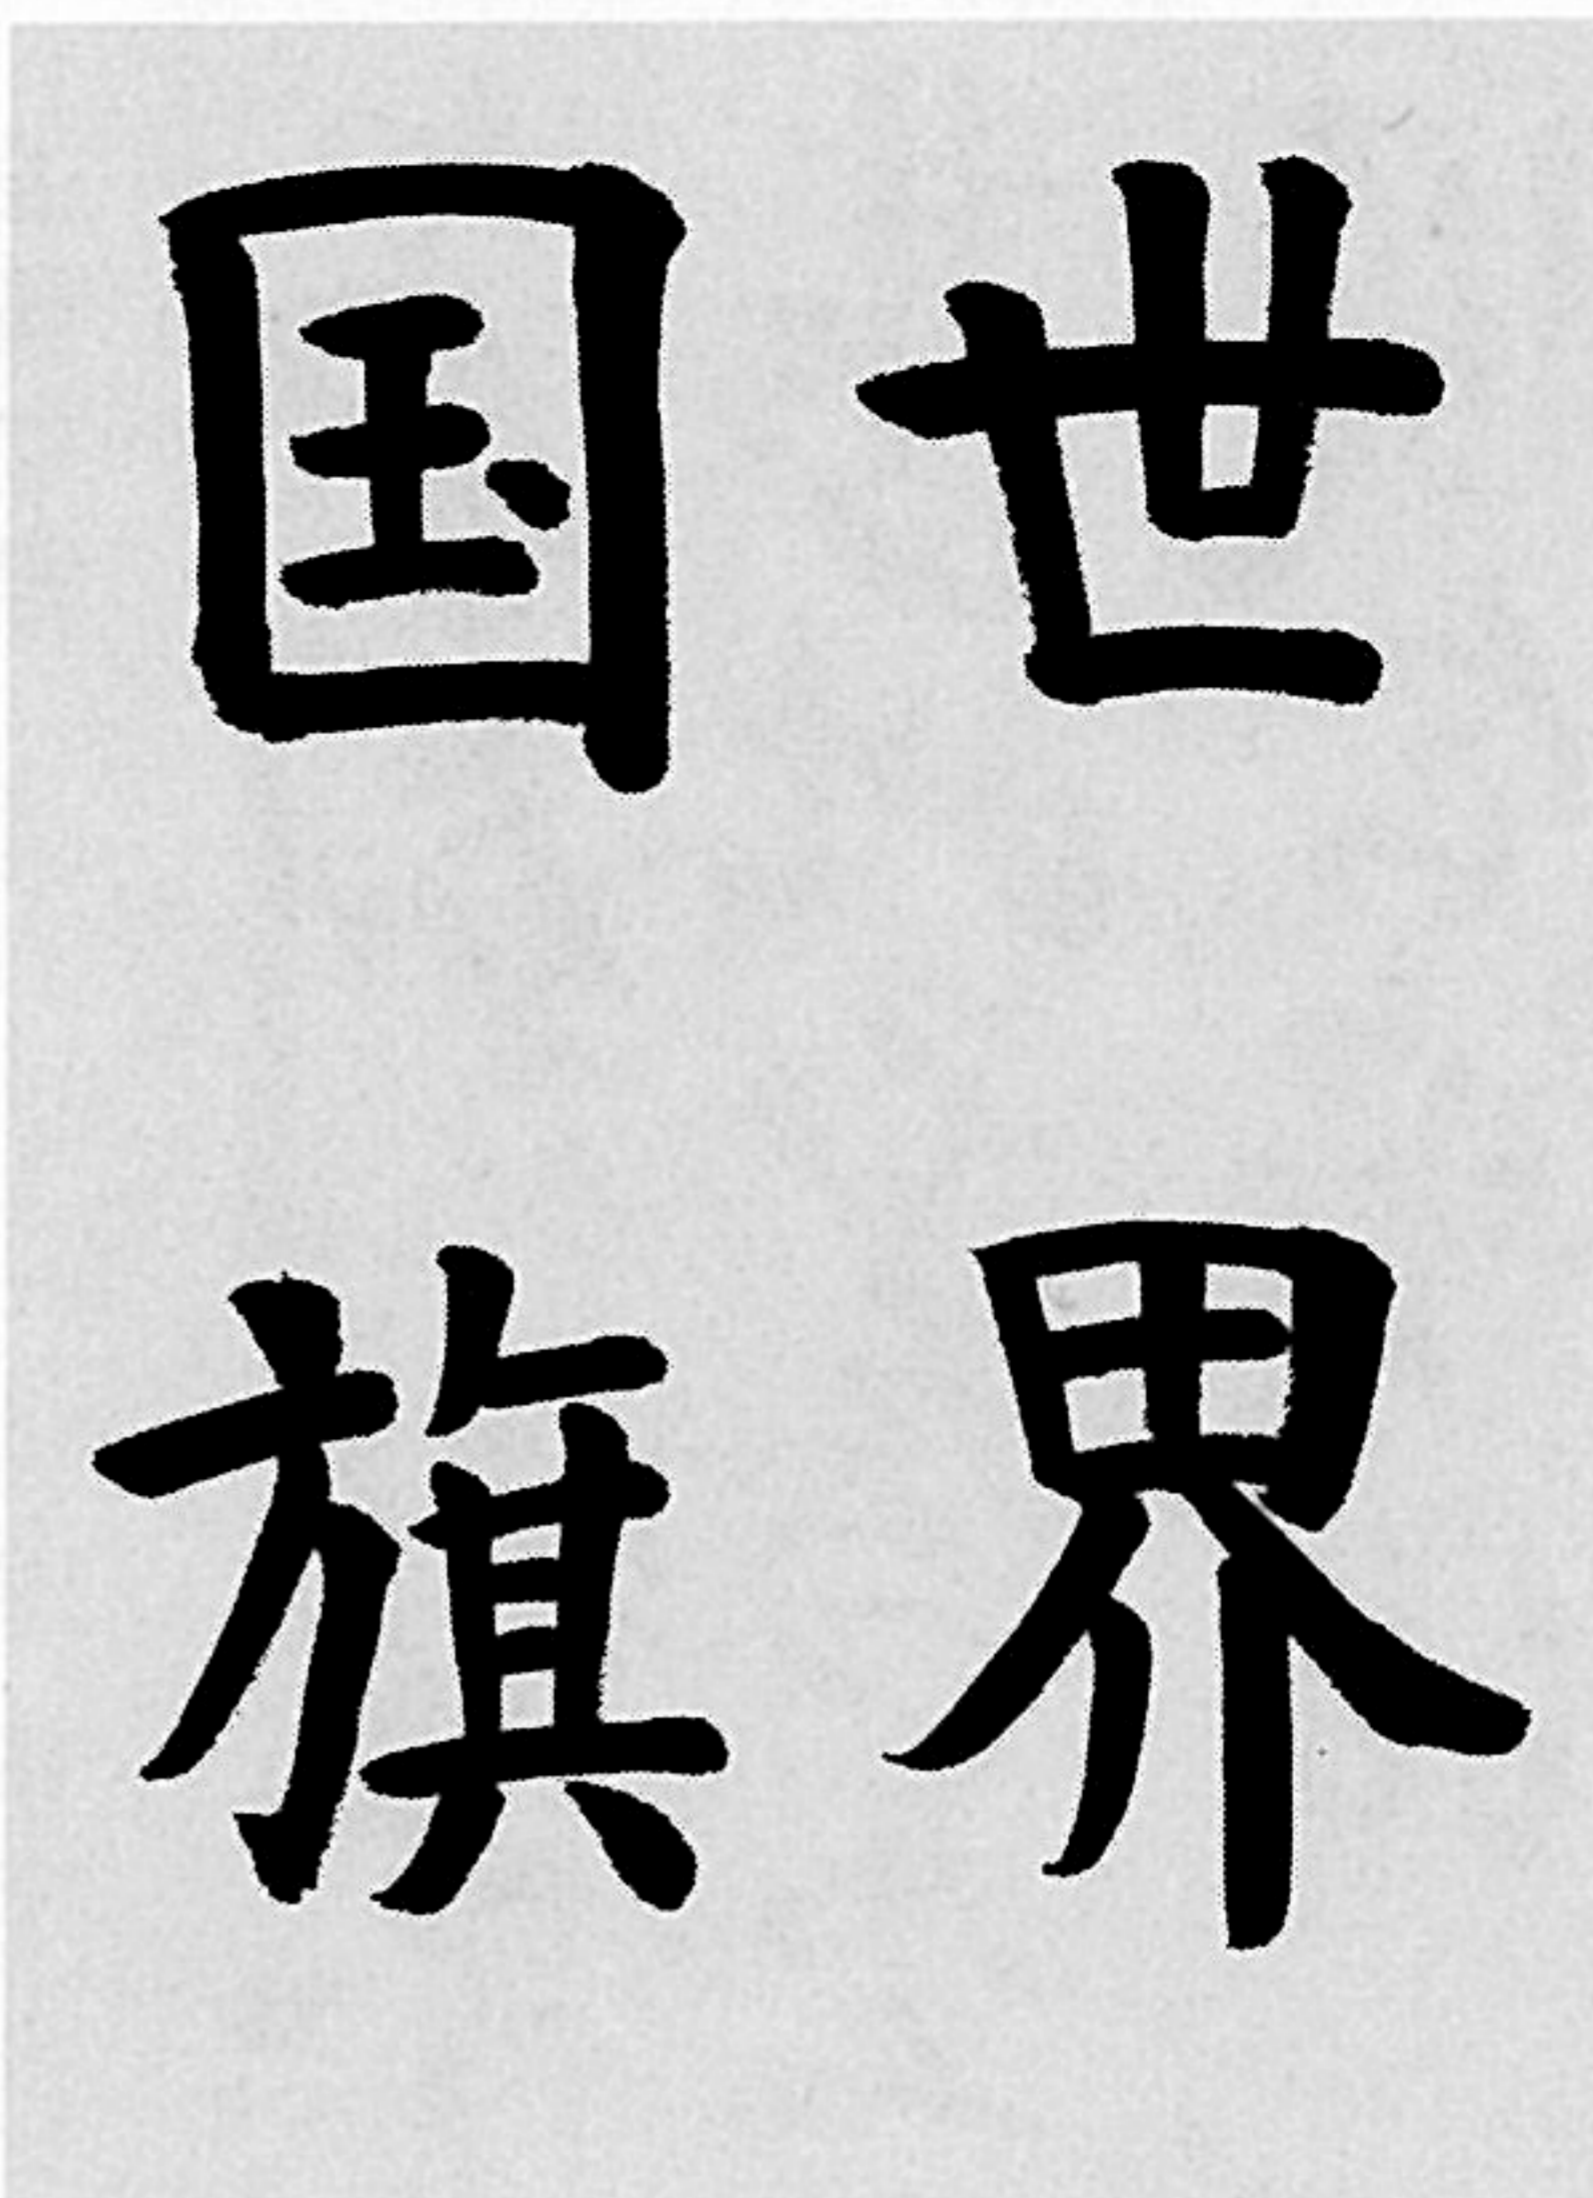 世界
国旗